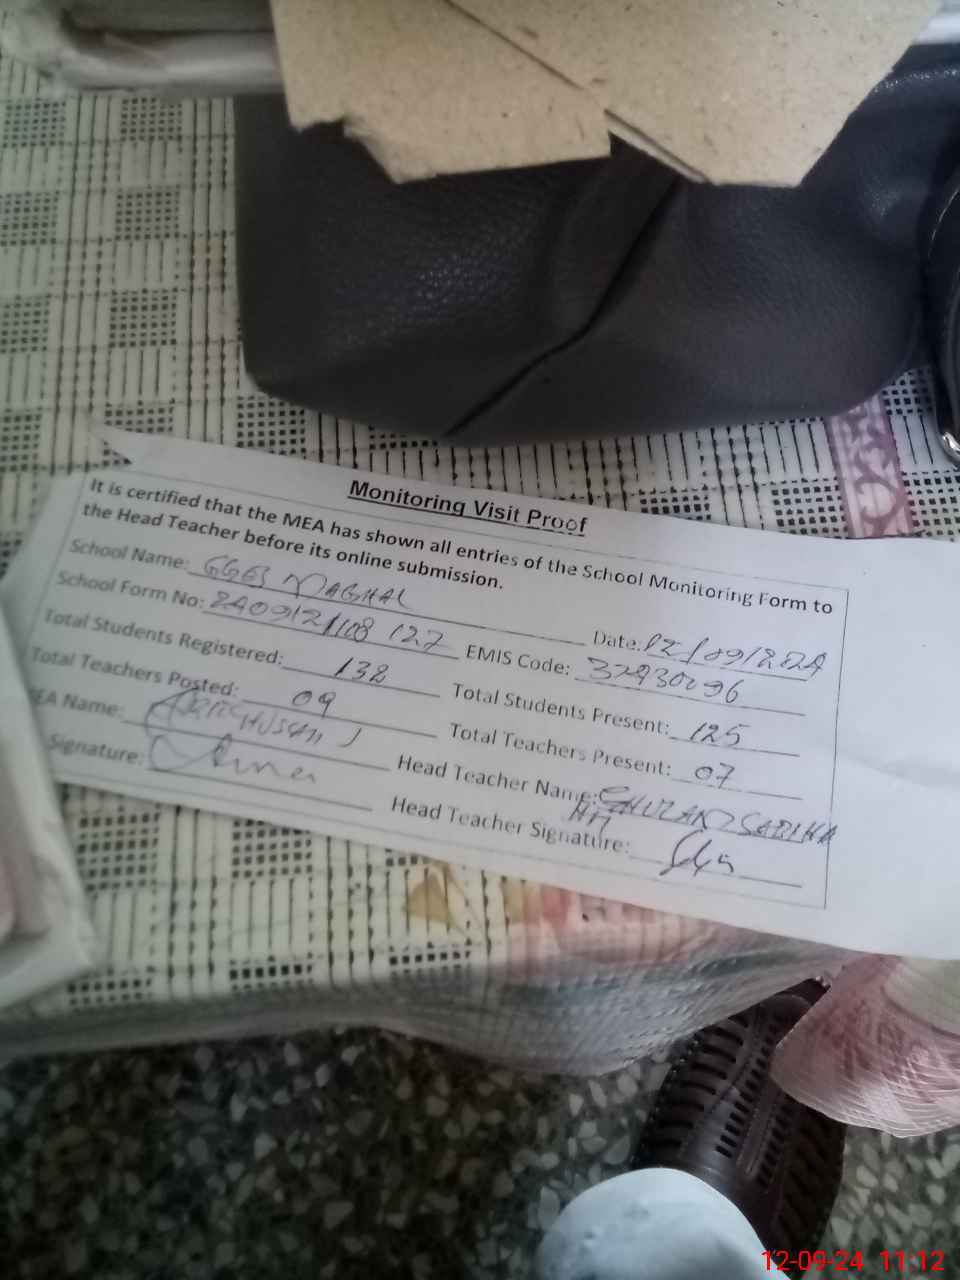 Monitoring Visit Proof
It is certified that the MEA has shown all entries of the School Monitoring Form to
the Head Teacher before its online submission.
School Name: GGES MAGHAL Date: 12/09/2024
School Form No: 240912 127 EMIS Code:
Total Students Registered: 138 Total Students Present: 125
Total Teachers Posted: 09 Total Teachers Present: 07
EA Name: HUSSAIN Head Teacher Name: SABIHA
Signature: Head Teacher Signature:
12-09-24 11:12